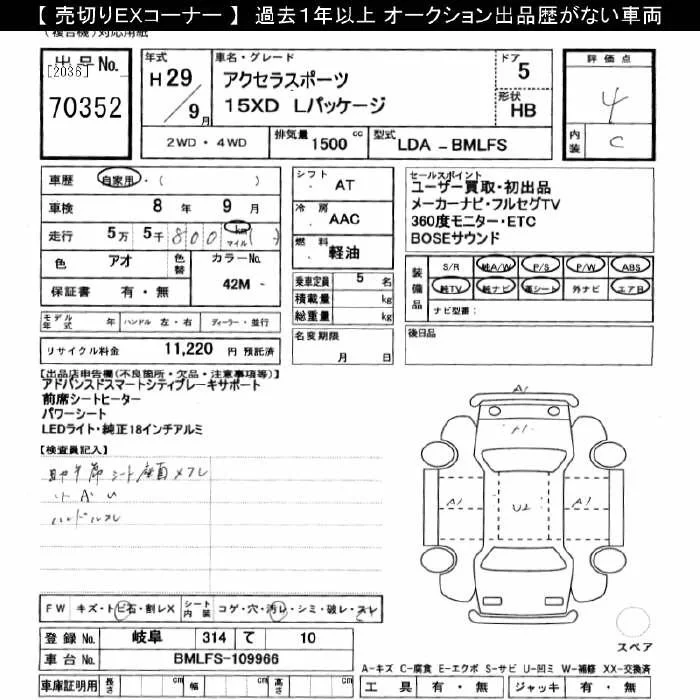 【 売切りEXコーナー 】 過去1年以上 オークション出品歴がない車両
(複合機)対応用紙
出品No. [2036] 70352
年式 H29/9月
車名・グレード アクセラスポーツ 15XD Lパッケージ
ドア 5
形状 HB
評価点 4
内装 C
2WD・4WD
排気量 1500 cc
型式 LDA-BMLFS
車歴 自家用・( )
車検 8年 9月
走行 5万 5千 800 km マイル ( )
色 アオ
色替
カラーNo. 42M-
保証書 有・無
シフト AT
冷房 AAC
燃料 軽油
乗車定員 5 名
積載量 kg
総重量 kg
名変期限 月 日
セールスポイント
ユーザー買取・初出品
メーカーナビ・フルセグTV
360度モニター・ETC
BOSEサウンド
装備品
S/R 純A/W P/S P/W ABS
純TV 純ナビ 革シート 外ナビ エアB
ナビ型番:
モデル年式 年 ハンドル 左・右 ディーラー・並行
リサイクル料金 11,220 円 預託済
後日品
【出品店申告欄(不良箇所・欠品・注意事項等)】
アドバンスドスマートシティブレーキサポート
前席シートヒーター
パワーシート
LEDライト・純正18インチアルミ
【検査員記入】
シート座面スレ
小A U
ハンドルスレ
A1
A1
A1
U2
A1
FW キズ・ト ビ石・割レX
シート内装 コゲ・穴・汚レ・シミ・破レ・スレ
登録No. 岐阜 314 て 10
車台No. BMLFS-109966
スペア
A-キズ C-腐食 E-エクボ S-サビ U-凹ミ W-補修 XX-交換済
車庫証明用 長さ cm 幅 cm 高さ cm
工具 有・無 ジャッキ 有・無